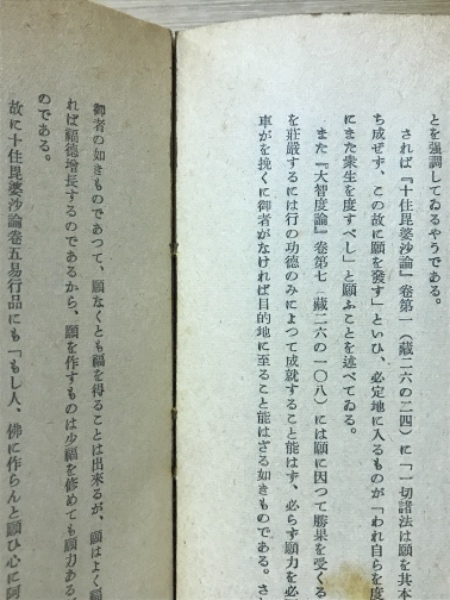 とを强調してゐるやうである。
されば『十住毘婆沙論』卷第一（藏二六の二四）に「一切諸法は願を其本
ち成ぜず、この故に願を發す」といひ、必定地に入るものが「われ自らを度
にまた衆生を度すべし」と願ふことを述べてゐる。
また『大智度論』卷第七（藏二六の一〇八）には願に因つて勝果を受くる
を莊嚴するには行の功德のみによつて成就すること能はず、必らず願力を必
車がを挽くに御者がなければ目的地に至ること能はざる如きものである。さ
御者の如きものであつて、願なくとも福を得ることは出來るが、願はよく福
れば福德增長するのであるから、願を作すものは少福を修めても願力ある
のである。
故に十住毘婆沙論卷五易行品にも「もし人、佛に作らんと願ひ心に阿